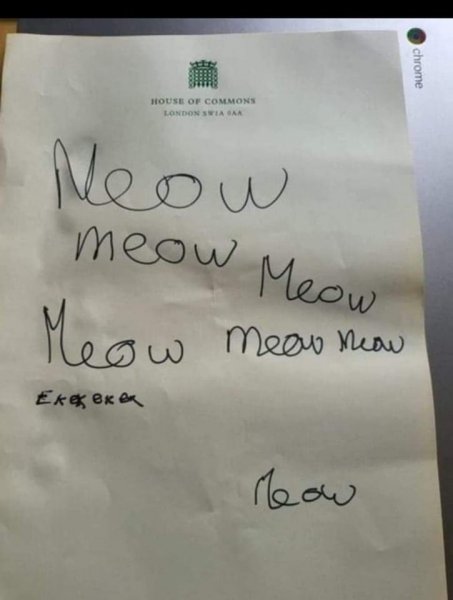 chrome
HOUSE OF COMMONS
LONDON SW1A 0AA
Meow
meow
Meow
Meow
meow Meow
Meow